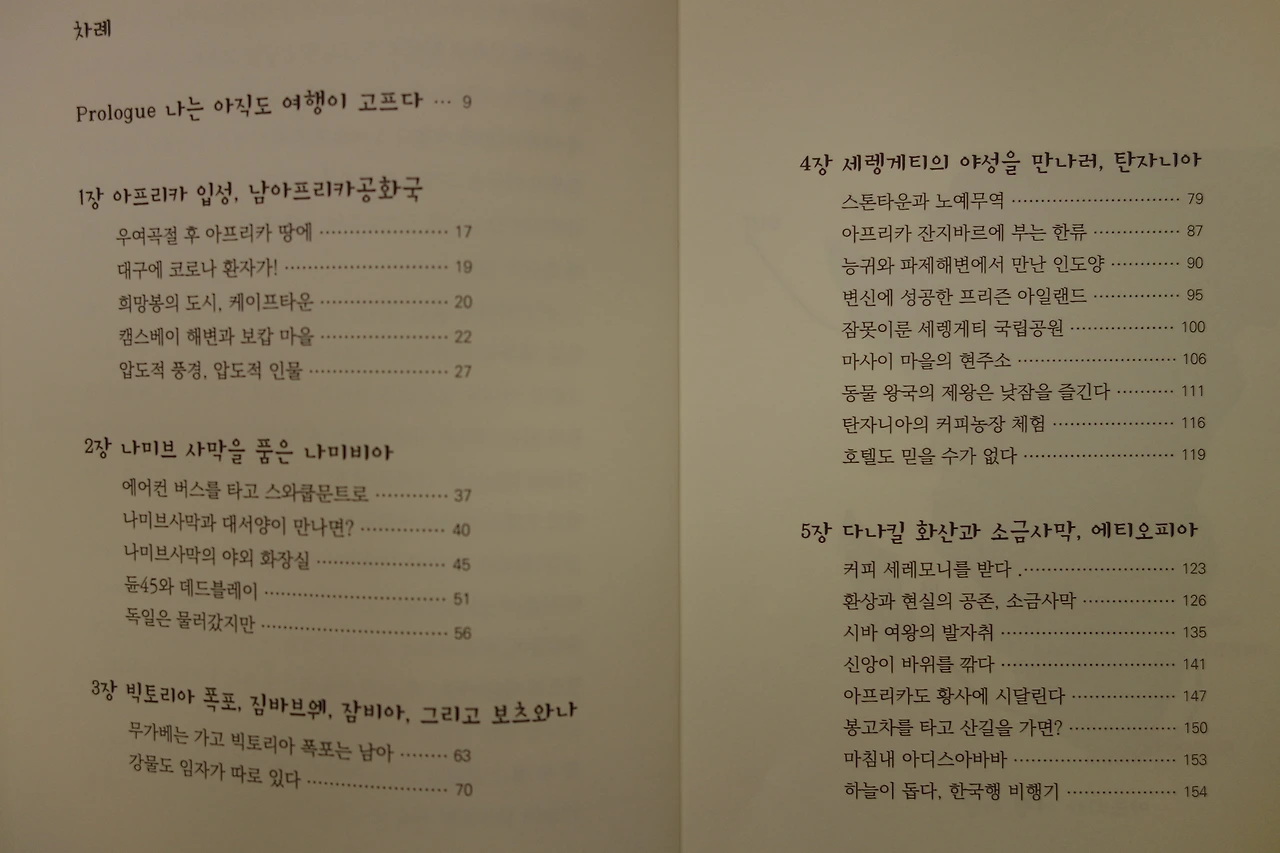 차례
Prologue 나는 아직도 여행이 고프다 ··· 9
1장 아프리카 입성, 남아프리카공화국
우여곡절 후 아프리카 땅에 ······················ 17
대구에 코로나 환자가! ···························· 19
희망봉의 도시, 케이프타운 ······················ 20
캠스베이 해변과 보캅 마을 ······················ 22
압도적 풍경, 압도적 인물 ························ 27
2장 나미브 사막을 품은 나미비아
에어컨 버스를 타고 스와콥문트로 ············ 37
나미브사막과 대서양이 만나면? ·············· 40
나미브사막의 야외 화장실 ······················ 45
듄45와 데드블레이 ································ 51
독일은 물러갔지만 ································ 56
3장 빅토리아 폭포, 짐바브웨, 잠비아, 그리고 보츠와나
무가베는 가고 빅토리아 폭포는 남아 ········ 63
강물도 임자가 따로 있다 ························ 70
4장 세렝게티의 야성을 만나러, 탄자니아
스톤타운과 노예무역 ····························· 79
아프리카 잔지바르에 부는 한류 ··············· 87
능귀와 파제해변에서 만난 인도양 ············ 90
변신에 성공한 프리즌 아일랜드 ··············· 95
잠못이룬 세렝게티 국립공원 ·················· 100
마사이 마을의 현주소 ··························· 106
동물 왕국의 제왕은 낮잠을 즐긴다 ·········· 111
탄자니아의 커피농장 체험 ····················· 116
호텔도 믿을 수가 없다 ·························· 119
5장 다나킬 화산과 소금사막, 에티오피아
커피 세레모니를 받다 .·························· 123
환상과 현실의 공존, 소금사막 ················ 126
시바 여왕의 발자취 ······························ 135
신앙이 바위를 깎다 ······························ 141
아프리카도 황사에 시달린다 ·················· 147
봉고차를 타고 산길을 가면? ··················· 150
마침내 아디스아바바 ···························· 153
하늘이 돕다, 한국행 비행기 ··················· 154